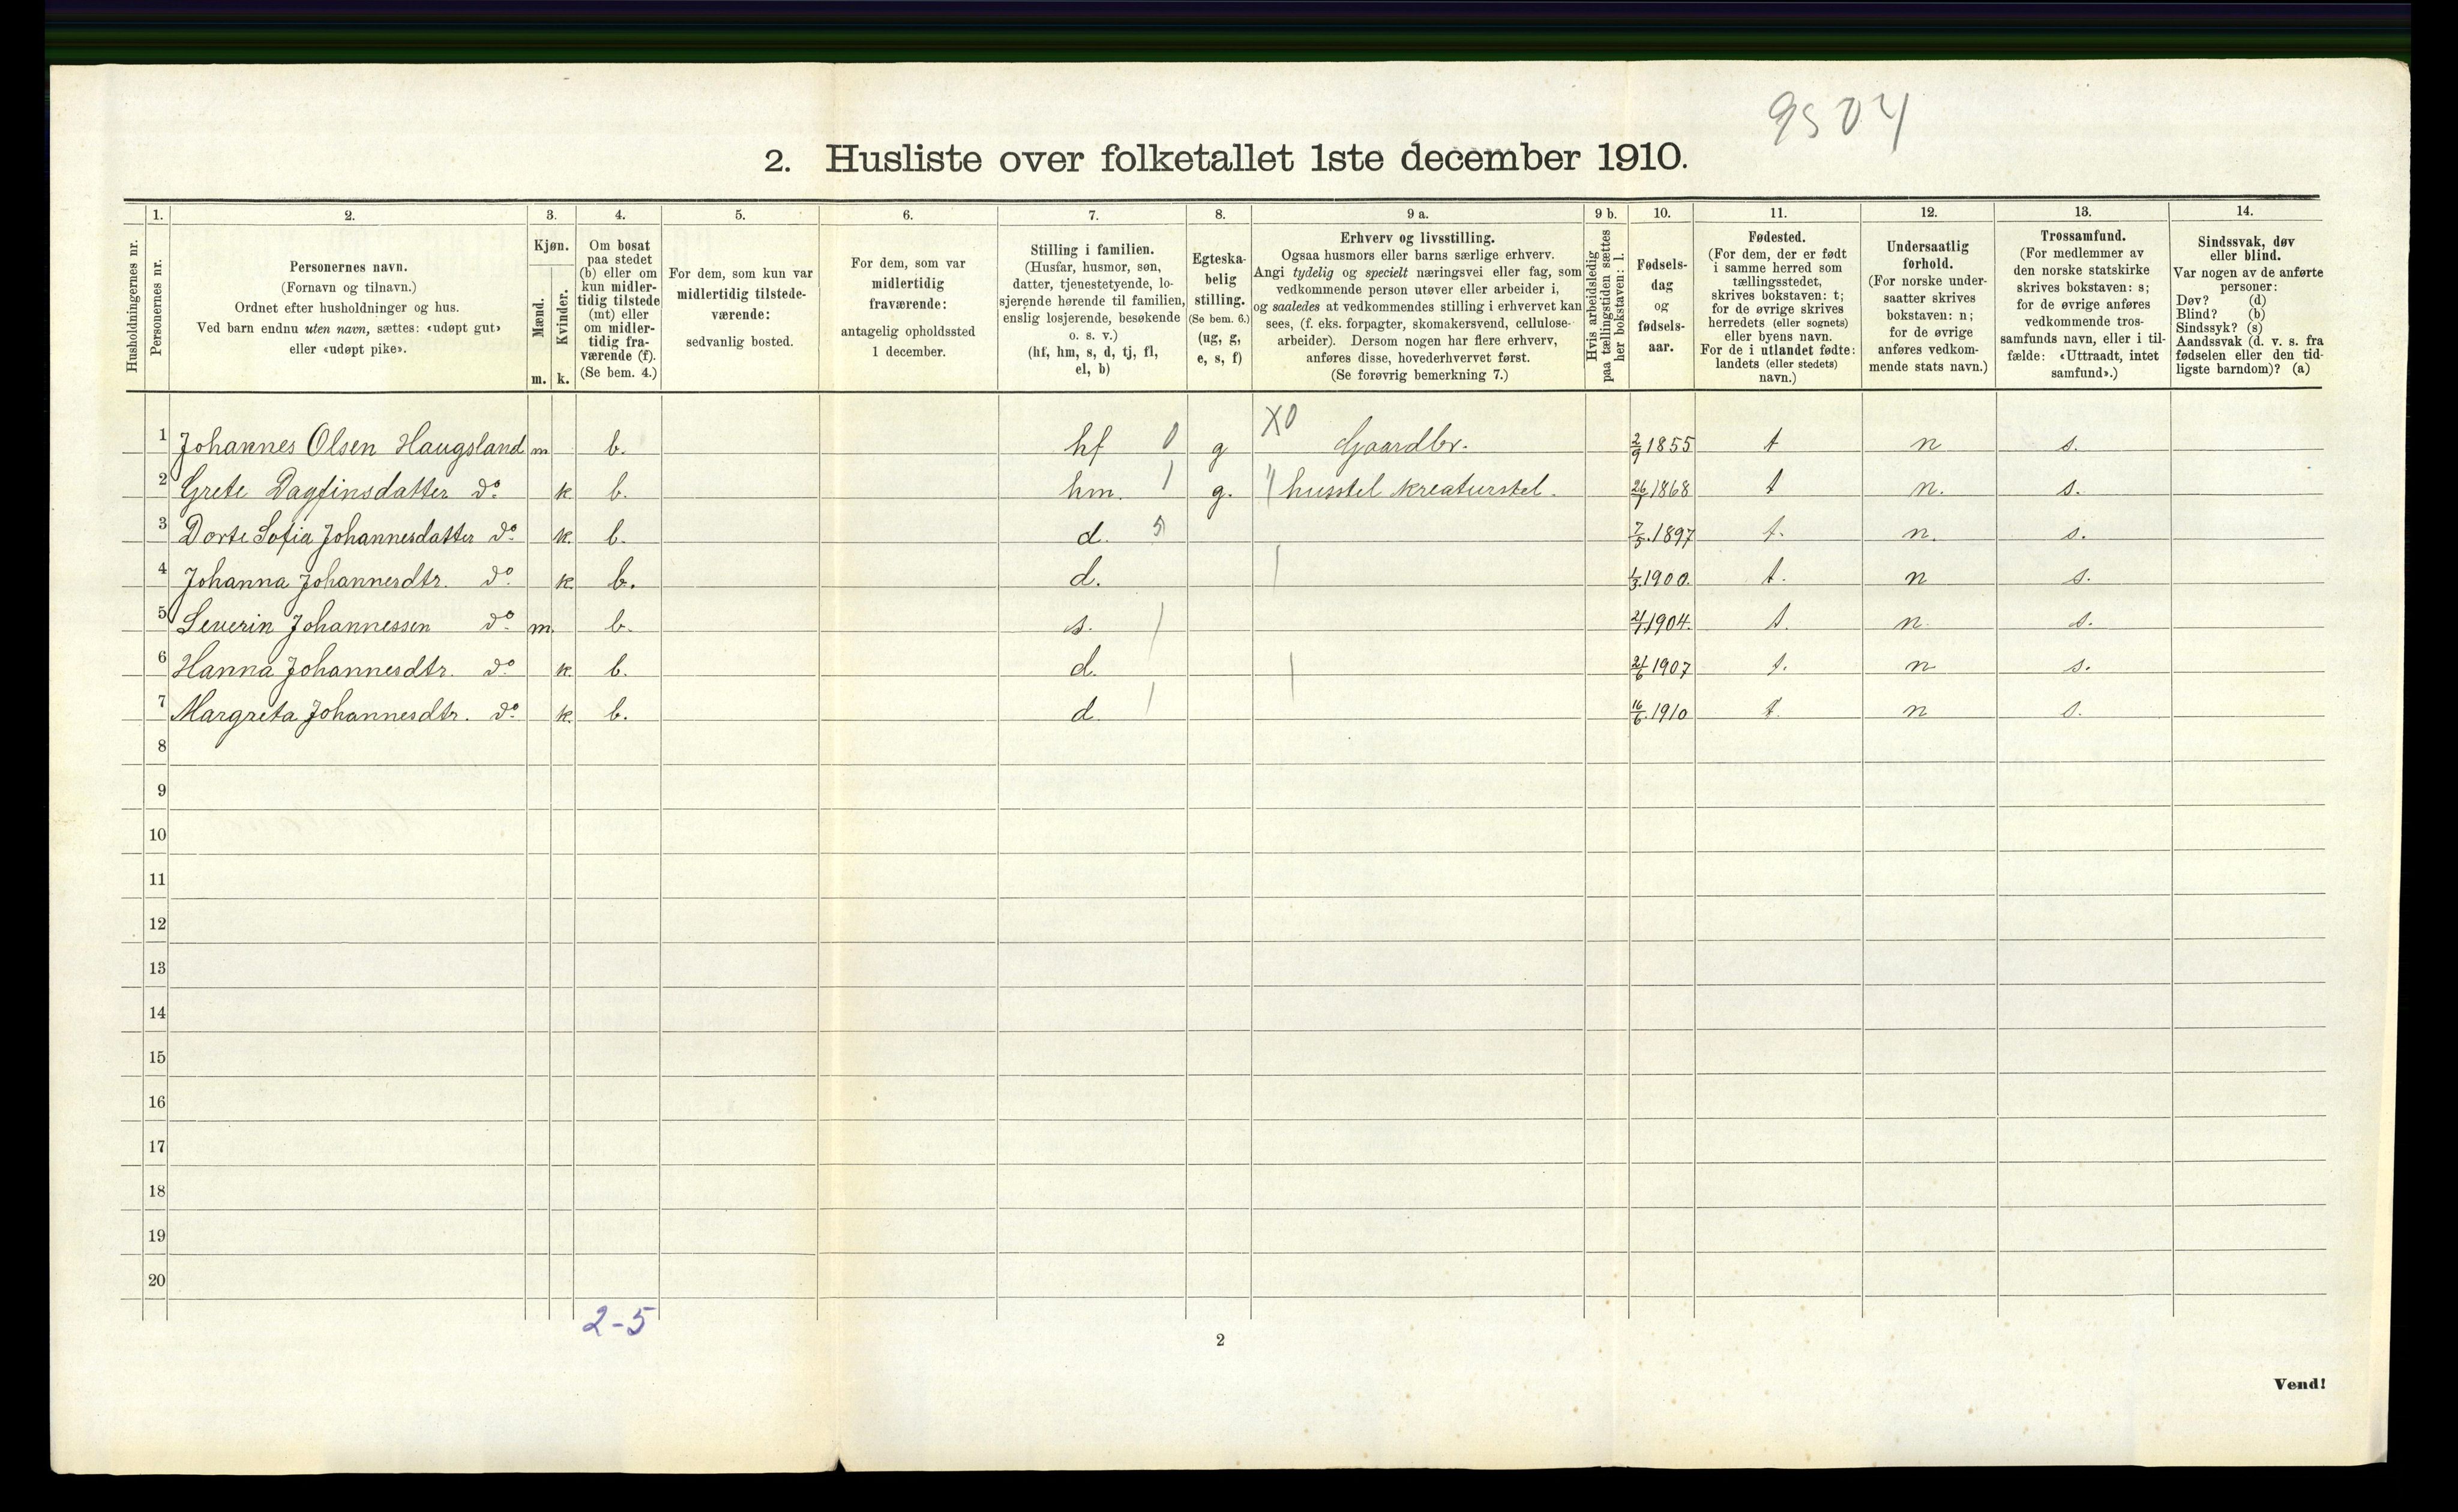 9504
2. Husliste over folketallet 1ste december 1910.
Husholdningernes nr.
1. Personernes nr.
2. Personernes navn.
(Fornavn og tilnavn.)
Ordnet efter husholdninger og hus.
Ved barn endnu uten navn, sættes: «udøpt gut»
eller «udøpt pike».
3. Kjøn.
Mænd. m.
Kvinder. k.
4. Om bosat
paa stedet
(b) eller om
kun midler-
tidig tilstede
(mt) eller
om midler-
tidig fra-
værende (f).
(Se bem. 4.)
5. For dem, som kun var
midlertidig tilstede-
værende:
sedvanlig bosted.
6. For dem, som var
midlertidig
fraværende:
antagelig opholdssted
1 december.
7. Stilling i familien.
(Husfar, husmor, søn,
datter, tjenestetyende, lo-
sjerende hørende til familien,
enslig losjerende, besøkende
o. s. v.)
(hf, hm, s, d, tj, fl,
el, b)
8. Egteska-
belig
stilling.
(Se bem. 6.)
(ug, g,
e, s, f)
9 a. Erhverv og livsstilling.
Ogsaa husmors eller barns særlige erhverv.
Angi tydelig og specielt næringsvei eller fag, som
vedkommende person utøver eller arbeider i,
og saaledes at vedkommendes stilling i erhvervet kan
sees, (f. eks. forpagter, skomakersvend, cellulose-
arbeider). Dersom nogen har flere erhverv,
anføres disse, hovederhvervet først.
(Se forøvrig bemerkning 7.)
9 b. Hvis arbeidsledig
paa tællingstiden sættes
her bokstaven: l.
10. Fødsels-
dag
og
fødsels-
aar.
11. Fødested.
(For dem, der er født
i samme herred som
tællingsstedet,
skrives bokstaven: t;
for de øvrige skrives
herredets (eller sognets)
eller byens navn.
For de i utlandet fødte:
landets (eller stedets)
navn.)
12. Undersaatlig
forhold.
(For norske under-
saatter skrives
bokstaven: n;
for de øvrige
anføres vedkom-
mende stats navn.)
13. Trossamfund.
(For medlemmer av
den norske statskirke
skrives bokstaven: s;
for de øvrige anføres
vedkommende tros-
samfunds navn, eller i til-
fælde: «Uttraadt, intet
samfund».)
14. Sindssvak, døv
eller blind.
Var nogen av de anførte
personer:
Døv? (d)
Blind? (b)
Sindssyk? (s)
Aandssvak (d. v. s. fra
fødselen eller den tid-
ligste barndom)? (a)
1 Johannes Olsen Haugsland m b. hf 0 g X0 Gaardbr. 2/9 1855 t n s.
2 Grete Dagfinsdatter do. k b. hm. 1 g. husstel kreaturstel. 26/7 1868 t n. s.
3 Dorte Sofia Johannesdatter do. k. b. d. 5 7/5.1897 t. n. s.
4 Johanna Johannesdtr. do. k. b. d. 1/3.1900. t. n s.
5 Severin Johannessen do. m. b. s. 21/7 1904. t. n. s.
6 Hanna Johannesdtr. do. k. b. d. 21/6 1907 t. n s.
7 Margreta Johannesdtr. do. k. b. d. 16/6.1910 t. n s.
8
9
10
11
12
13
14
15
16
17
18
19
20
2-5
2
Vend!